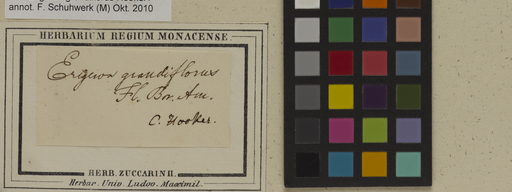 annot. F. Schuhwerk (M) Okt. 2010
HERBARIUM REGIUM MONACENSE.
Erigeron grandiflorus
Fl. Bor. Am.
C. Hooker.
HERB. ZUCCARINII.
Herbar. Univ. Ludov. Maximil.